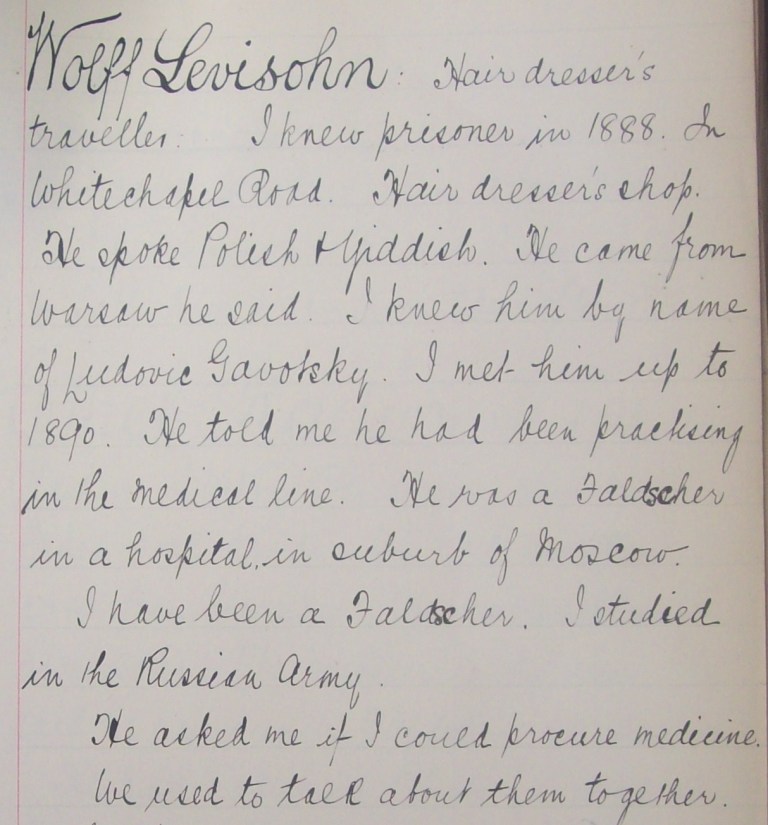 Wolff Levisohn: Hair dresser's
traveller. I knew prisoner in 1888. In
Whitechapel Road. Hair dresser's shop.
He spoke Polish & Yiddish. He came from
Warsaw he said. I knew him by name
of Ludovic Gavotsky. I met him up to
1890. He told me he had been practising
in the medical line. He was a Faldscher
in a hospital, in suburb of Moscow.
I have been a Faldscher. I studied
in the Russian Army.
He asked me if I could procure medicine.
We used to talk about them together.